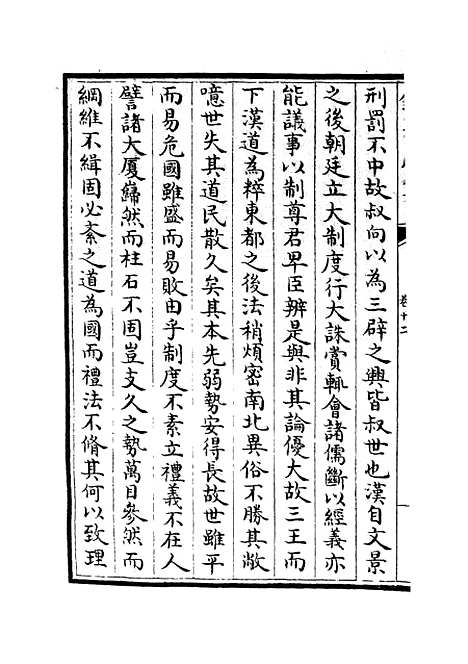 刑罰不中故叔向以為三辟之興皆叔世也漢自文景
之後朝廷立大制度行大誅賞輒會諸儒斷以經義亦
能議事以制尊君卑臣辨是與非其論優大故三王而
下漢道為粹東都之後法稍煩密南北異俗不勝其敝
噫世失其道民散久矣其本先弱勢安得長故世雖平
而易危國雖盛而易敗由乎制度不素立禮義不在人
譬諸大厦巋然而柱石不固豈支久之勢萬目參然而
綱維不緝固必紊之道為國而禮法不脩其何以致理
卷十二